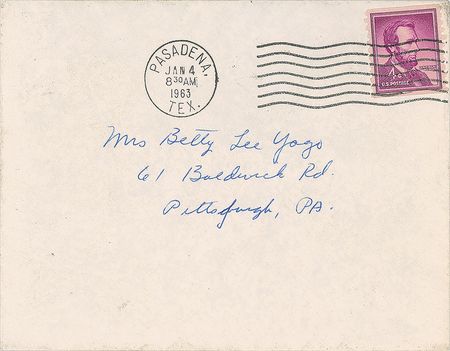 PASADENA,
JAN 4
8 30 AM
1963
TEX.
4¢
U.S. POSTAGE
Mrs Betty Lee Yogo
61 Baldwick Rd.
Pittsburgh, PA.